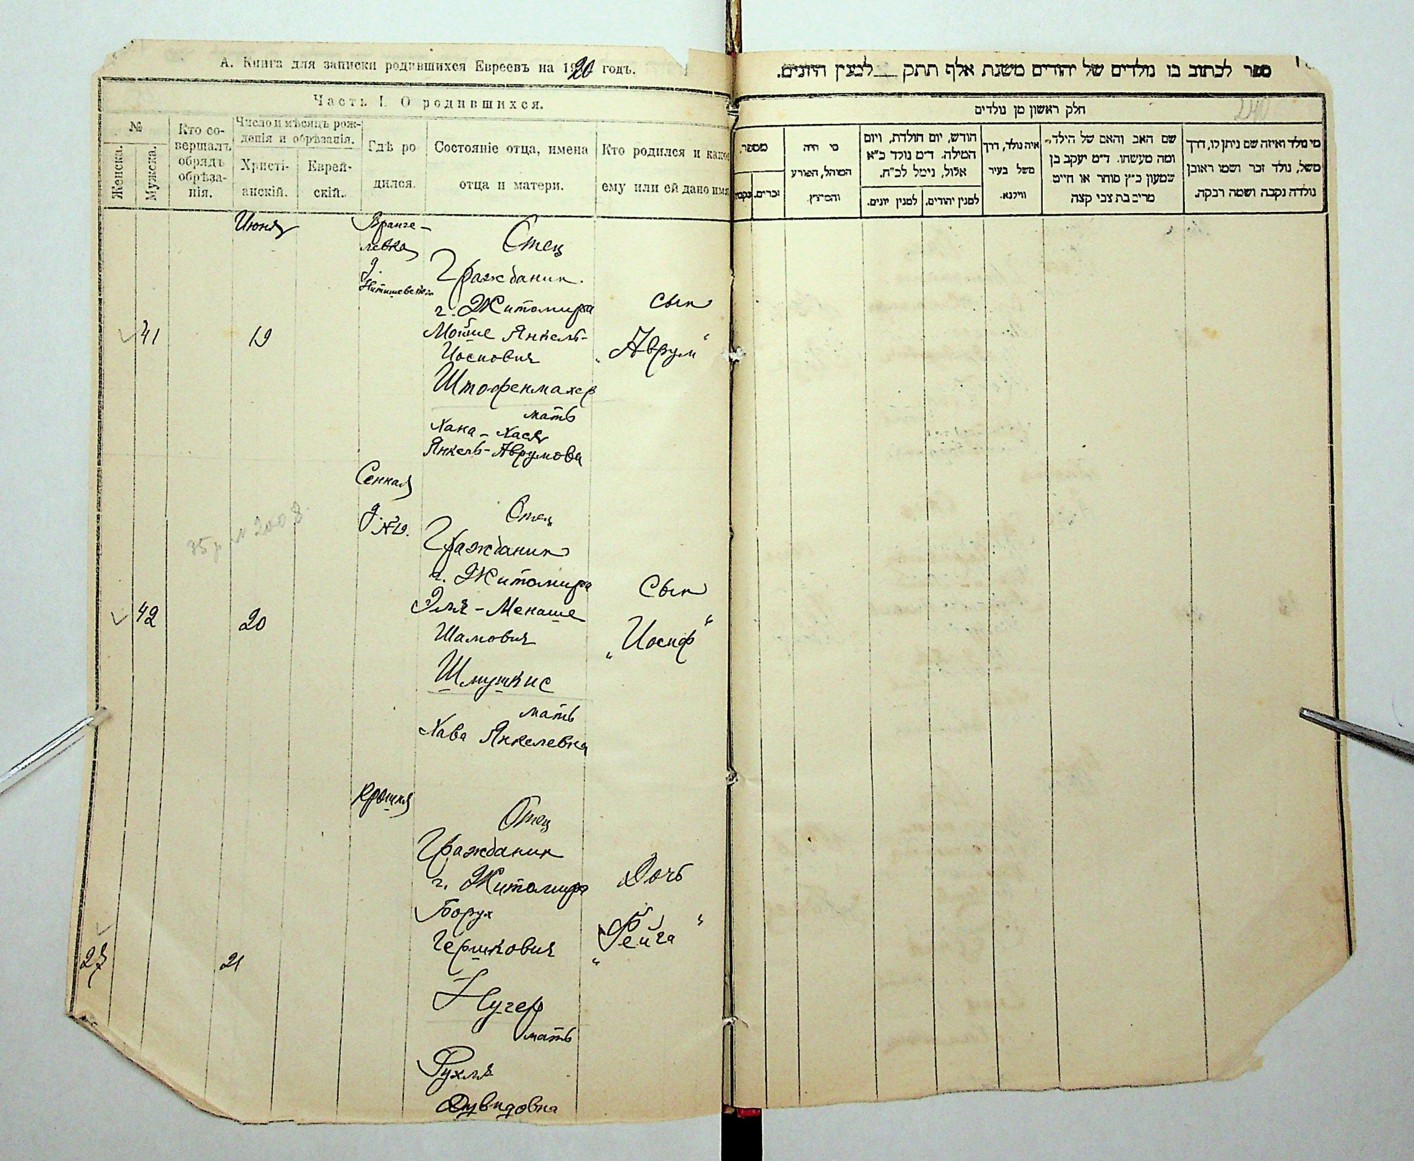 А. Книга для записки родившихся Евреевъ на 1920 годъ.
Часть I. О родившихся.
№
Женска.
Мужска.
Кто со-
вершалъ
обрядъ
обрѣза-
нія.
Число и мѣсяцъ рож-
денія и обрѣзанія.
Христі-
анскій.
Еврей-
скій.
Гдѣ ро
дился.
Состояніе отца, имена
отца и матери.
Кто родился и како
ему или ей дано имя
Июня
Вранге-
левка
Отец
Гражданин
г. Житомира
сын
41
19
Мойше Янкель-
Иоспович
„Аврум“
Штофенмахер
мать
Хана-Хася
Янкель-Аврумова
Сенная
д. №19.
Отец
Гражданин
г. Житомира
Сын
42
20
Эля-Менаше
Шамович
„Иосиф“
Шмушкис
мать
Хава Янкелевна
Крошня
Отец
Гражданин
г. Житомира
Дочь
Борух
27
21
Гершкович
„Фейга“
Нугер
мать
Рухля
Дувидовна
ספר לכתוב בו נולדים של יהודים משנת אלף תתק לבנין היונים.
240
חלק ראשון מן נולדים
מספר.
נקבות
זכרים.
מי היה
המוהל, הפורע
והמוצץ.
חודש, יום הולדת, ויום
המילה. ד״מ נולד כ״א
אלול, נימל לכ״ח.
למנין יונים.
למנין יהודים.
איה נולד, דרך
משל בעיר
ווילנא.
שם האב והאם של הילד,
ומה מעשהו. ד״מ יעקב בן
שמעון כ״ץ סוחר או חייט
מרים בת צבי קצה
מי נולד ואיזה שם ניתן לו, דרך
משל, נולד זכר ושמו ראובן
נולדה נקבה ושמה רבקה.